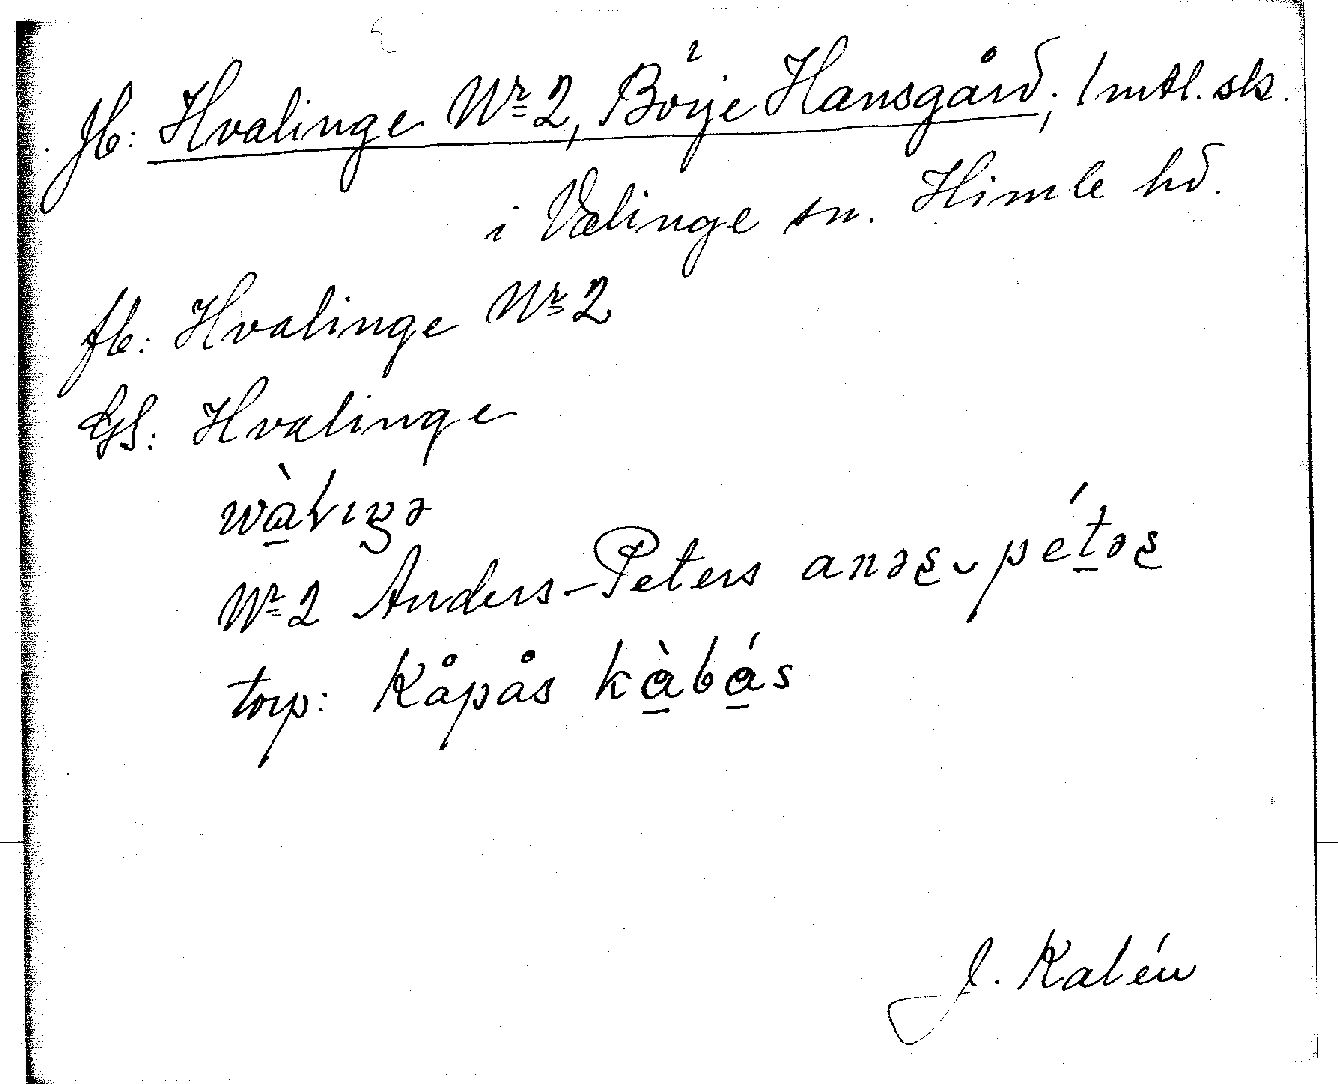 Jb: Hvalinge Nr 2, Börje Hansgård; 1 mtl. sk.
i Valinge sn. Himle hd.
fb: Hvalinge Nr 2
GS: Hvalinge
Nr 2 Anders-Peters
torp: Kåpås kàbás
J. Kalén